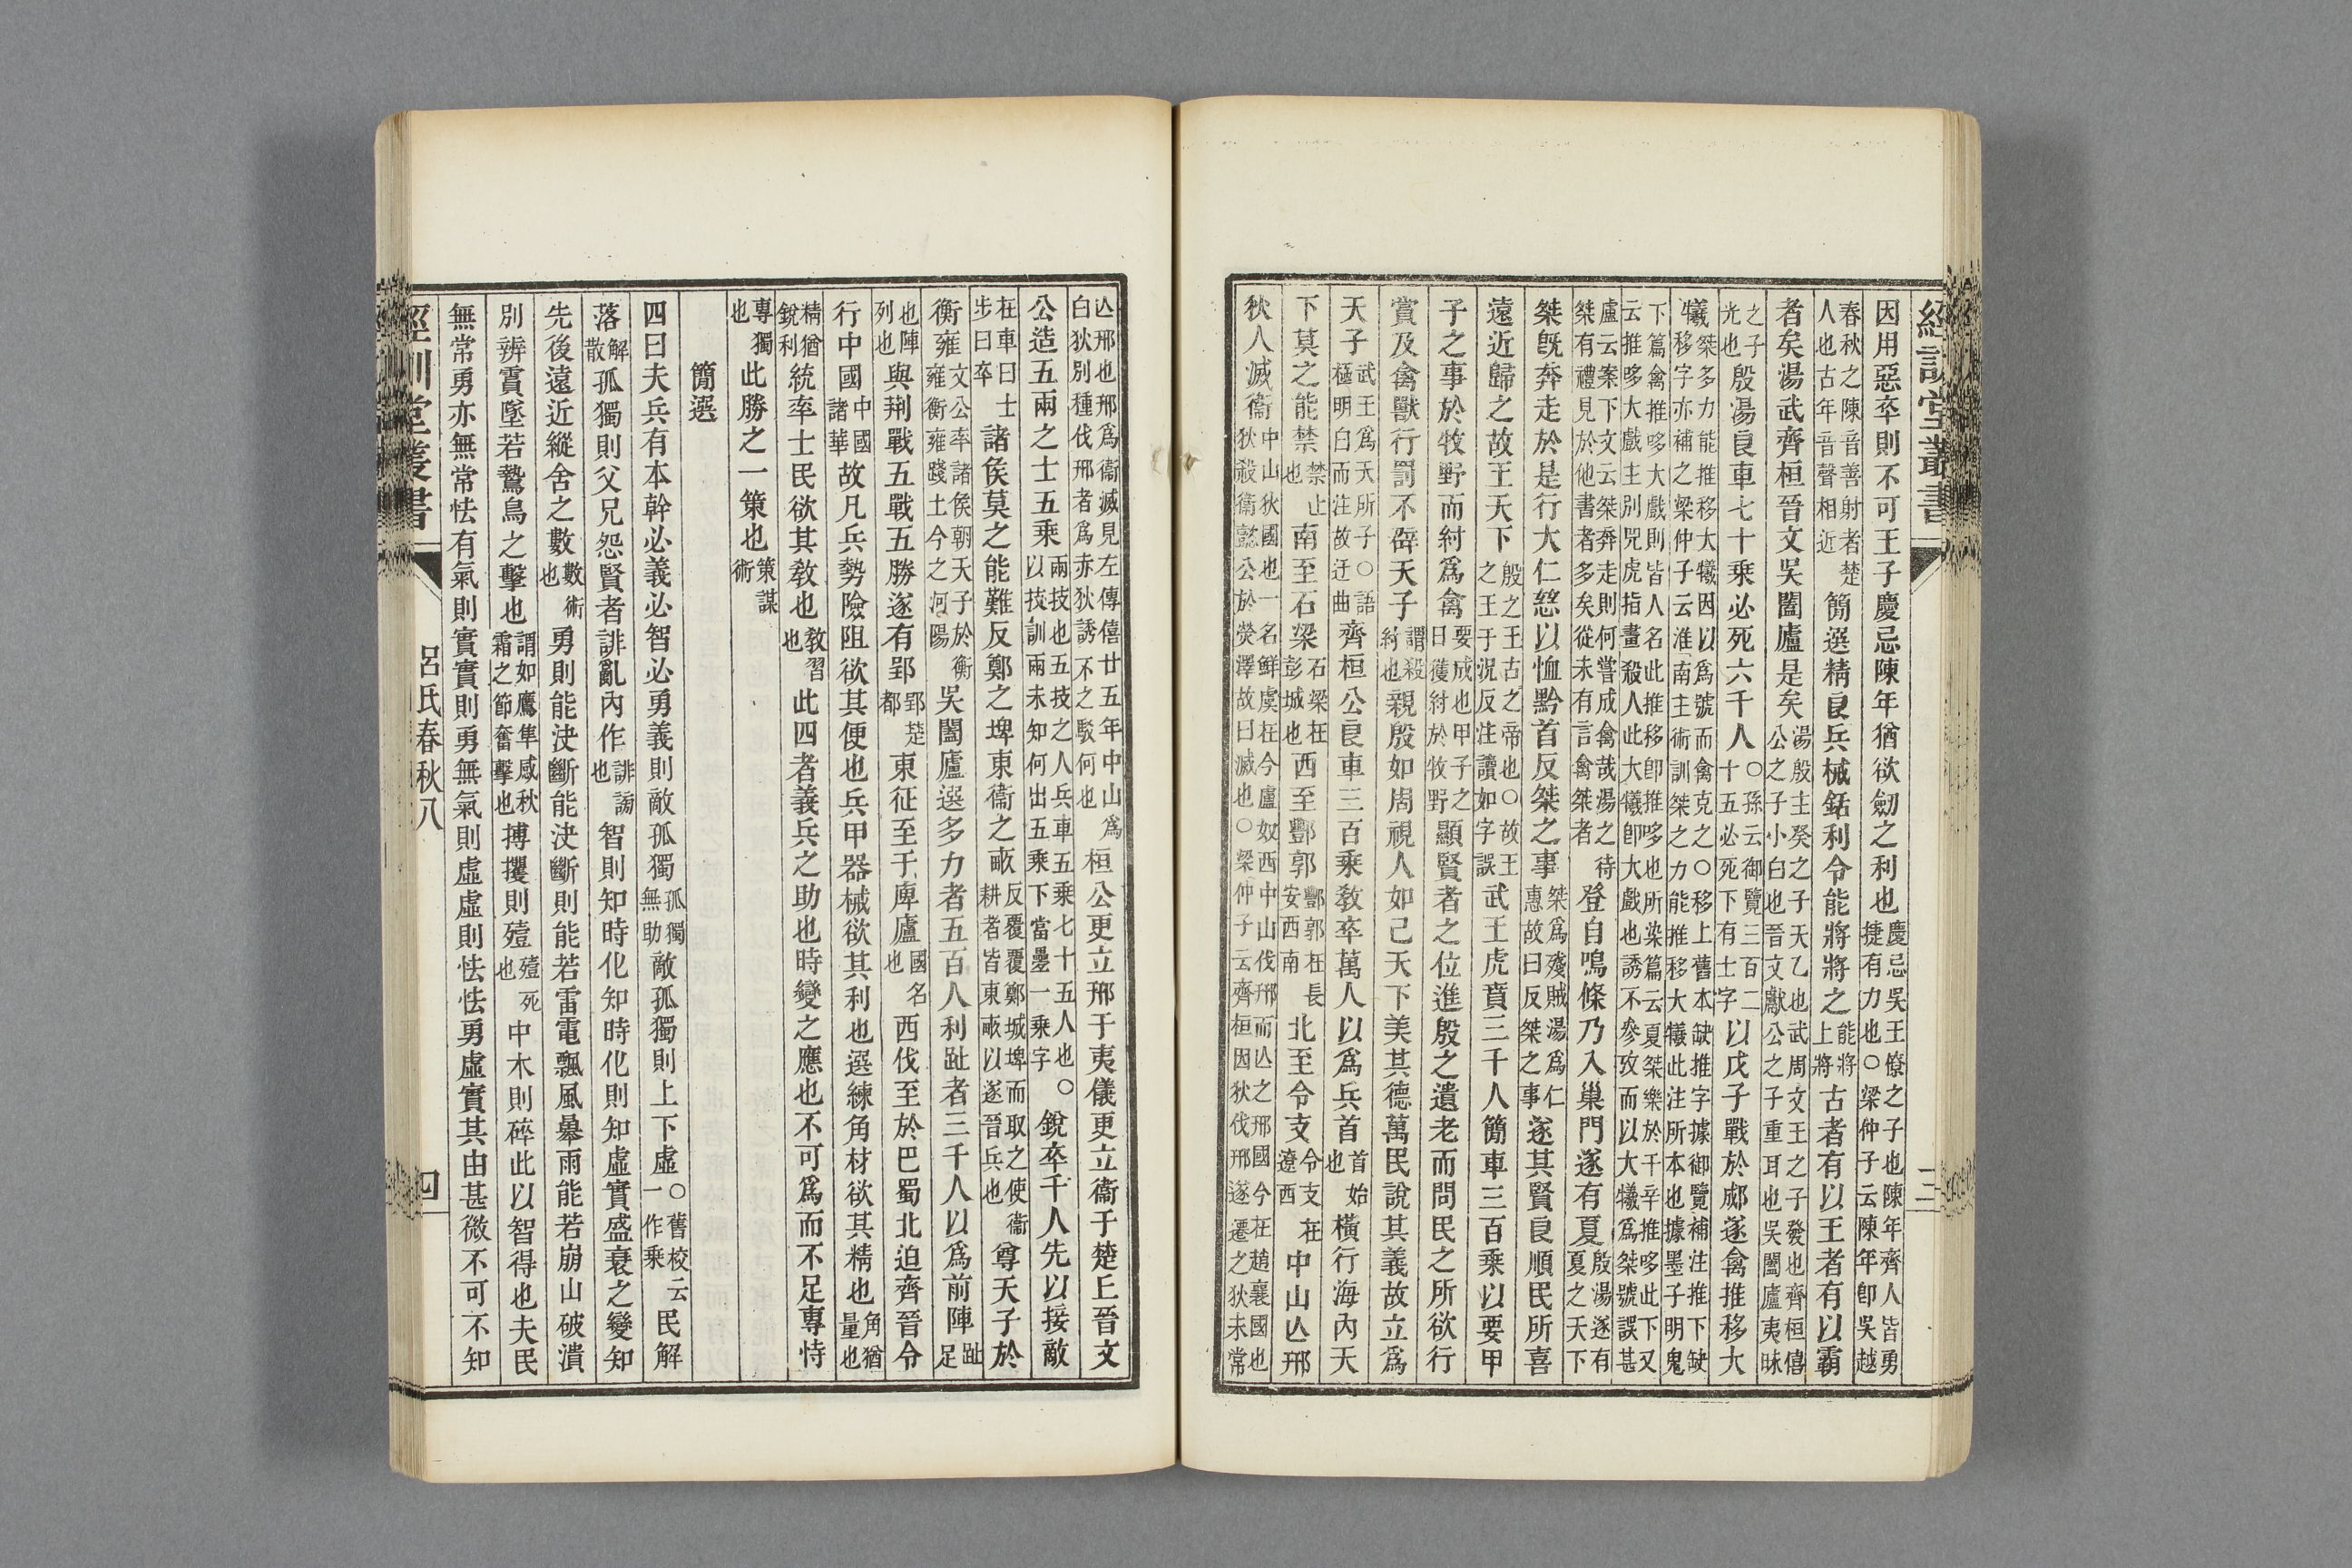 經訓堂叢書 三
因用惡卒則不可王子慶忌陳年猶欲劒之利也慶忌吳王僚之子也陳年齊人皆勇捷有力也○梁仲子云陳年卽吳越
春秋之陳音善射者楚人也古年音聲相近簡選精良兵械銛利令能將將之能將上將古者有以王者有以霸
者矣湯武齊桓晉文吳闔廬是矣湯殷主癸之子天乙也武周文王之子發也齊桓僖公之子小白也晉文獻公之子重耳也吳闔廬夷昧
之子光也殷湯良車七十乘必死六千人○孫云御覽三百二十五必死下有士字以戊子戰於郕遂禽推移大
犧桀多力能推移大犧因以爲號而禽克之○移上舊本缺推字據御覽補注推下缺移字亦補之梁仲子云淮南主術訓桀之力能推移大犧此注所本也據墨子明鬼
下篇禽推哆大戲則皆人名此推移卽推哆也所染篇云夏桀樂於干辛推哆此下又云推哆大戲主別兕虎指畫殺人此大犧卽大戲也誘不參攷而以大犧爲桀號誤甚
盧云案下文云桀奔走則何嘗成禽哉湯之待桀有禮見於他書者多矣從未有言禽桀者登自鳴條乃入巢門遂有夏殷湯遂有夏之天下
桀旣奔走於是行大仁慈以恤黔首反桀之事桀爲殘賊湯爲仁惠故曰反桀之事遂其賢良順民所喜
遠近歸之故王天下殷之王古之帝也○故王之王于況反注讀如字誤武王虎賁三千人簡車三百乘以要甲
子之事於牧野而紂爲禽要成也甲子之日獲紂於牧野顯賢者之位進殷之遺老而問民之所欲行
賞及禽獸行罰不辟天子謂殺紂也親殷如周視人如己天下美其德萬民說其義故立爲
天子武王爲天所子○語極明白而注故迂曲齊桓公良車三百乘敎卒萬人以爲兵首首始也橫行海內天
下莫之能禁禁止也南至石梁石梁在彭城也西至酆郭酆郭在長安西南北至令支令支在遼西中山亾邢
狄人滅衞中山狄國也一名鮮虞在今盧奴西中山伐邢而亾之邢國今在趙襄國也狄殺衞懿公於熒澤故曰滅也○梁仲子云齊桓因狄伐邢遂遷之狄未常
亾邢也邢爲衞滅見左傳僖廿五年中山爲白狄別種伐邢者爲赤狄誘不之駁何也桓公更立邢于夷儀更立衞于楚丘晉文
公造五兩之士五乘兩技也五技之人兵車五乘七十五人也○以技訓兩未知何出五乘下當疊一乘字銳卒千人先以接敵
在車曰士步曰卒諸侯莫之能難反鄭之埤東衞之畝反覆覆鄭城埤而取之使衞耕者皆東畝以遂晉兵也尊天子於
衡雍文公率諸侯朝天子於衡雍衡雍踐土今之河陽吳闔廬選多力者五百人利趾者三千人以爲前陣趾足
也陣列也與荆戰五戰五勝遂有郢郢楚都東征至于庳廬國名也西伐至於巴蜀北迫齊晉令
行中國中國諸華故凡兵勢險阻欲其便也兵甲器械欲其利也選練角材欲其精也角猶量也
精猶銳利統率士民欲其敎也敎習也此四者義兵之助也時變之應也不可爲而不足專恃
專獨也此勝之一策也策謀術
簡選
四曰夫兵有本幹必義必智必勇義則敵孤獨孤獨無助敵孤獨則上下虛○舊校云一作乘民解
落解散孤獨則父兄怨賢者誹亂內作誹謗也智則知時化知時化則知虛實盛衰之變知
先後遠近縱舍之數數術也勇則能決斷能決斷則能若雷電飄風暴雨能若崩山破潰
別辨霣墜若鷙鳥之擊也謂如鷹隼感秋霜之節奮擊也搏攫則殪殪死也中木則碎此以智得也夫民
無常勇亦無常怯有氣則實實則勇無氣則虛虛則怯怯勇虛實其由甚微不可不知
經訓堂叢書 呂氏春秋八 四